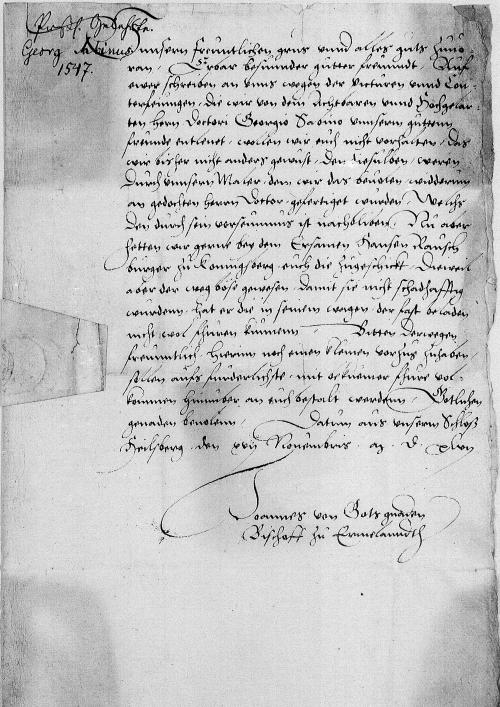 Georg Sabinus
1547.
Unsern freuntlichen grus unnd alles guts zuuo
ran. Erbar besunder gutter freundt. Auf
ewer schreiben an unns wegen der victuren unnd Con
terfeiungen, die wir von dem Achtbaren unnd Hochgelar
ten hern Doctori Georgio Sabino unnserm guttenn
freunde entlenet, wollen wir euch nicht vorhalten, das
wir bisher nicht anders gewust, den dieselben, weren
durch unnsern Maler, dem wir das beuolen widderum
an gedochten herrn Doctor gefertiget wurden, Welchs
den durch sein versaumnus ist nachbliben. Nu aber
hetten wir gerne bey dem Ersamen Hansen Rausch
burger zu Konningsberg euch die zugeschickt. Dieweil
aber der weg böse gewesen, damit sie nicht schadhafftig
wurdenn, hat er die in seinem wagen, der fast beladen
nicht wol fhuren kunnenn. Bitten derwegen
freuntlich, hierinn noch einen kleinen vorzug zuhaben
sollen aufs furderlichste, mit bequemer fhure vol
kommen hinuber an euch bestalt werdenn, Gotlichen
genaden beuolenn, Datum aus unserm Schlos
Heilsberg, den xvii Nouembris, an. D. xlvii
Joannes von Gots gnaden
Bischoff zu Ermelanndth